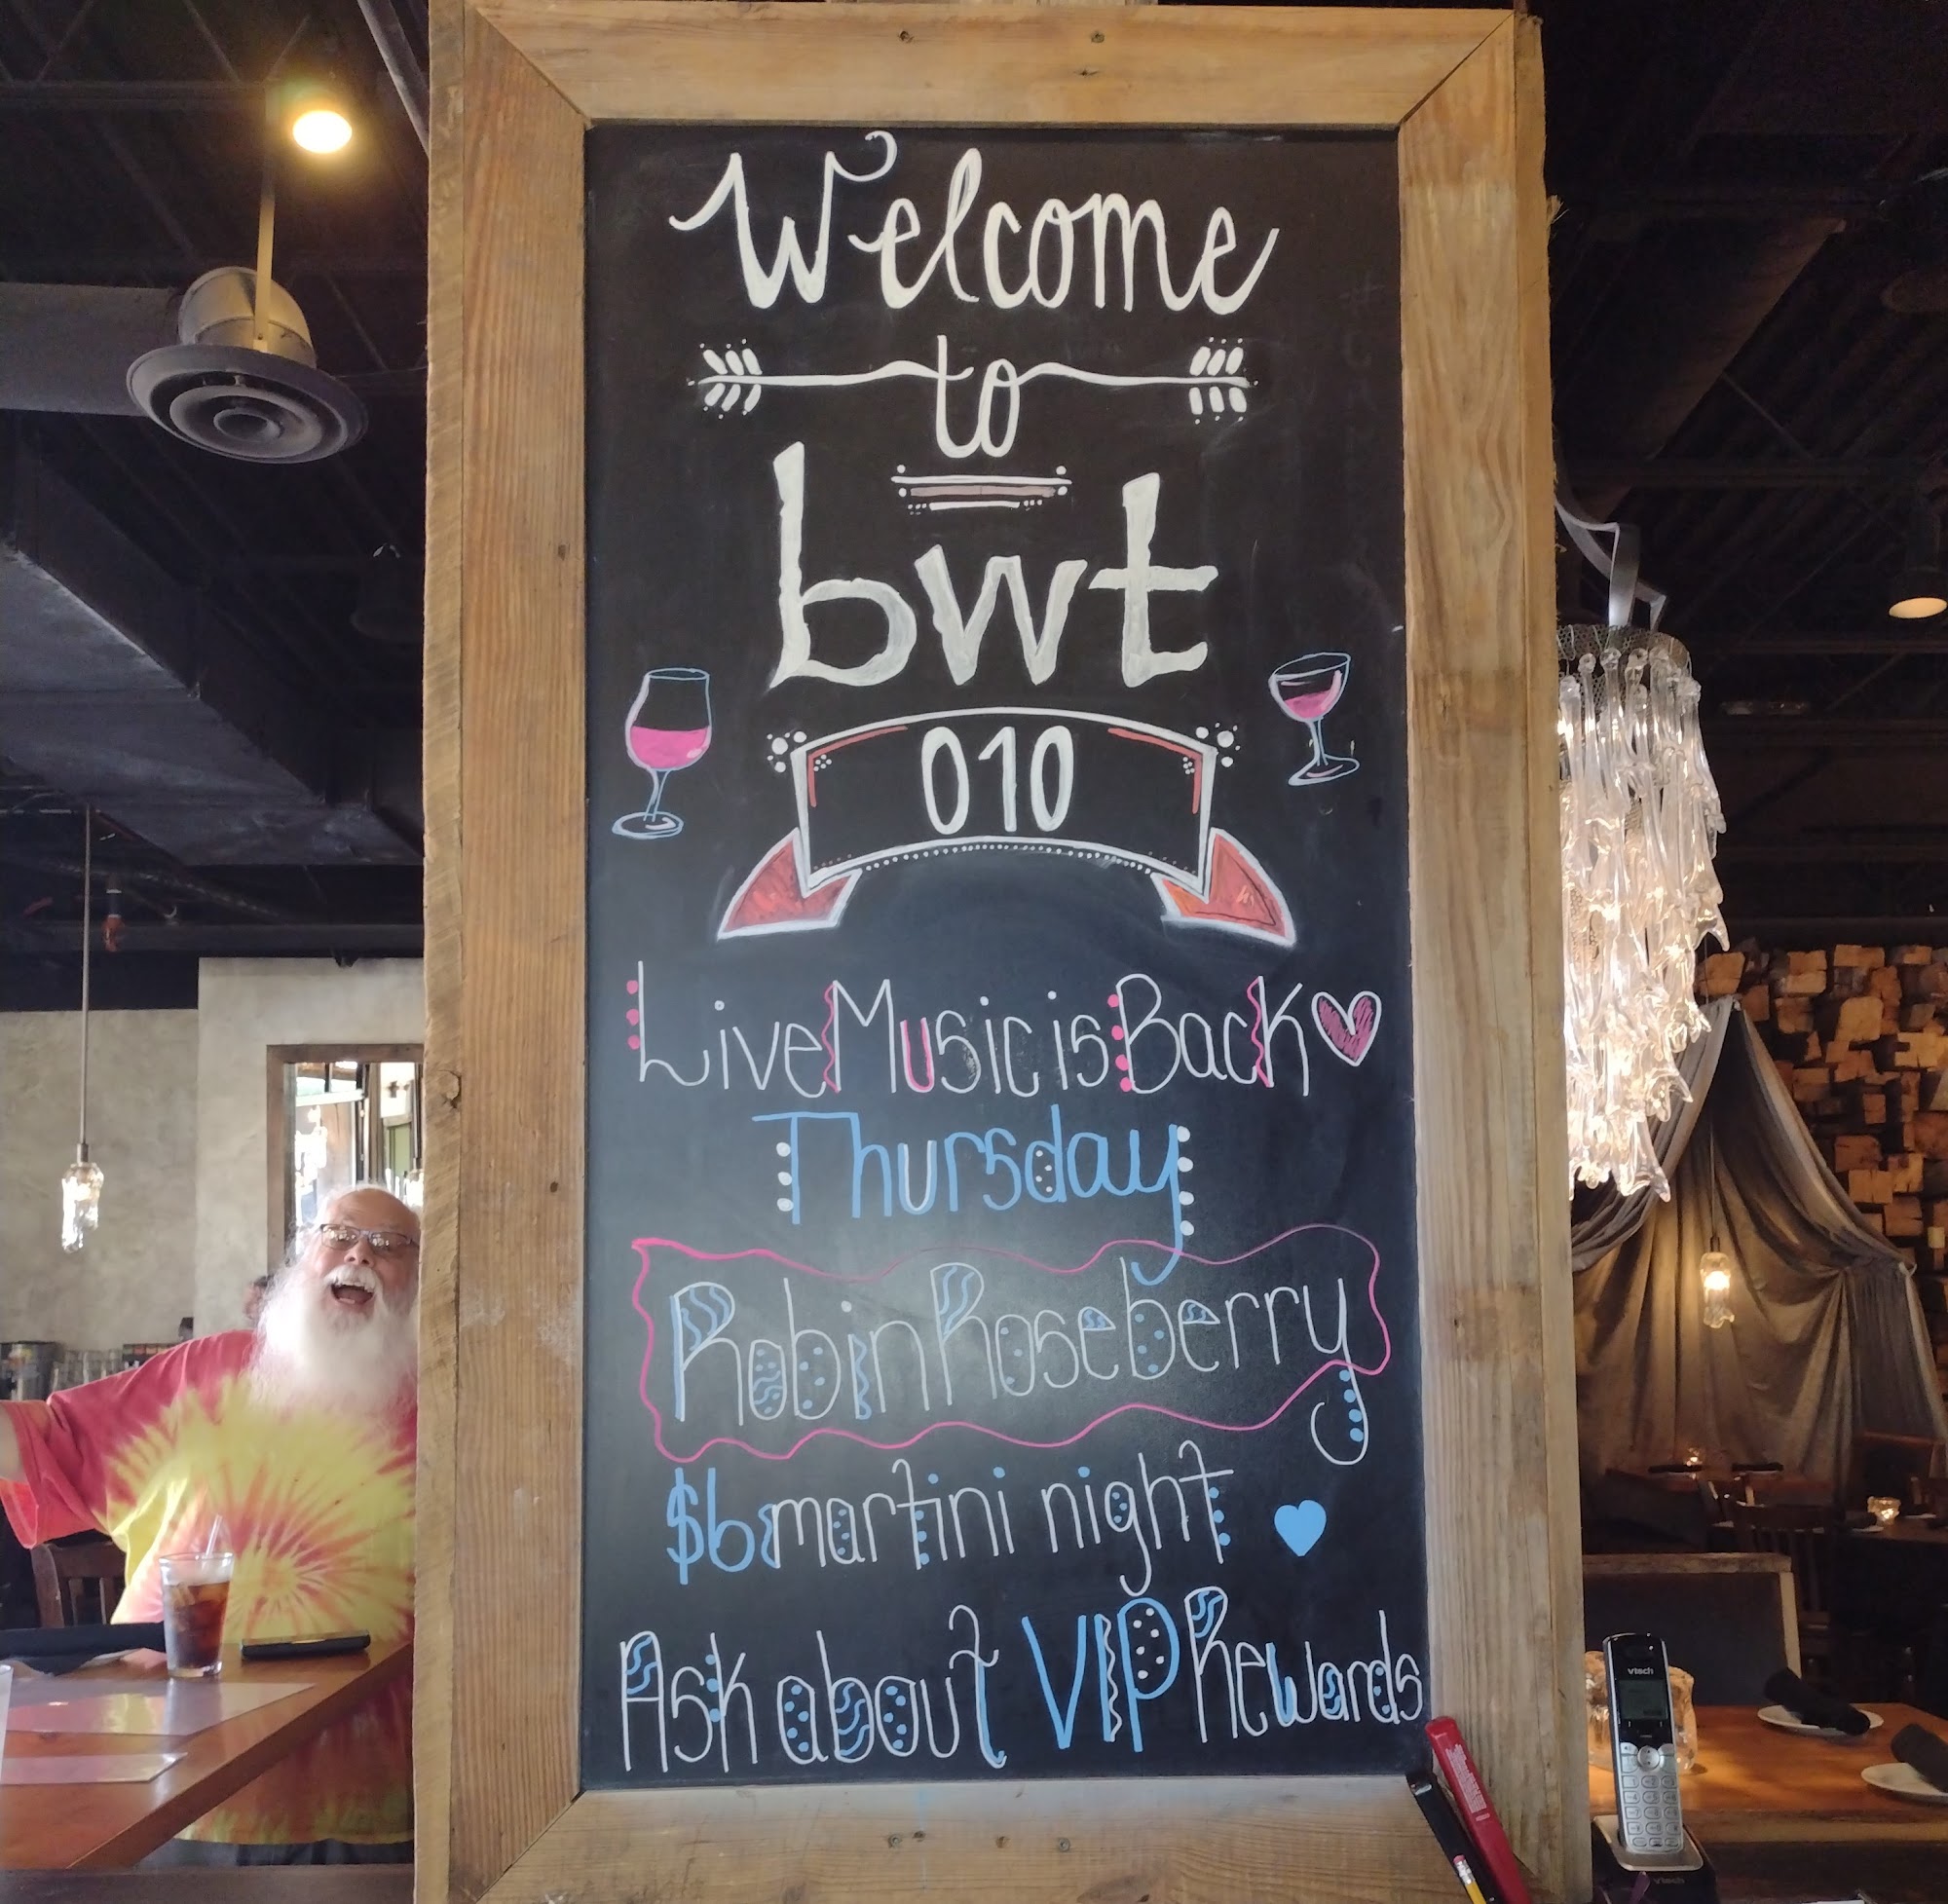 Welcome
to
bwt
010
Live Music is Back
Thursday
Robin Roseberry
$6 martini night
Ask about VIP Rewards
vtech
vtech